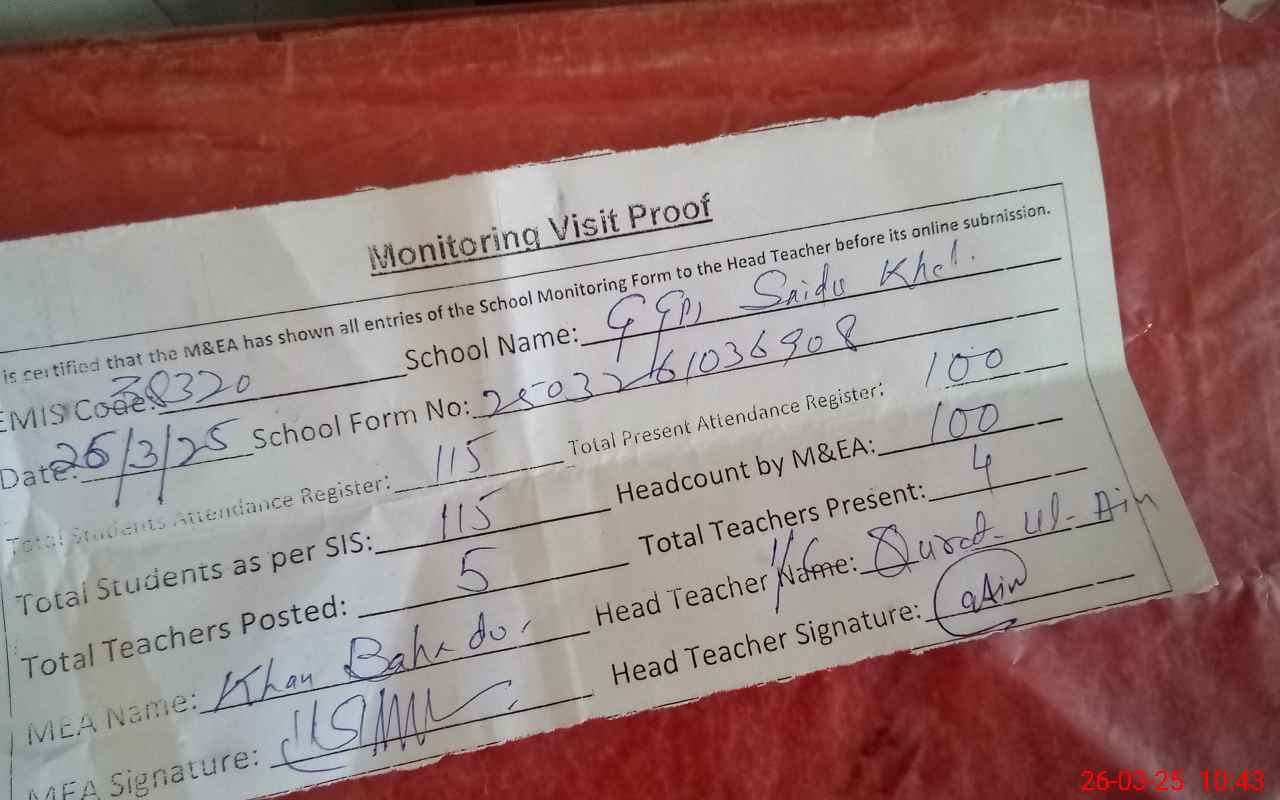 Monitoring Visit Proof
is certified that the M&EA has shown all entries of the School Monitoring Form to the Head Teacher before its online submission.
EMIS Code: 38320 School Name: GGPS Saidu Khel.
Date: 26/3/25 School Form No: 2503261036908
Total Students Attendance Register: 115 Total Present Attendance Register: 100
Total Students as per SIS: 115 Headcount by M&EA: 100
Total Teachers Posted: 5 Total Teachers Present: 4
MEA Name: Khan Bahador Head Teacher Name: Qurat-ul-Ain
MEA Signature: Head Teacher Signature: qAin
26-03-25 10:43